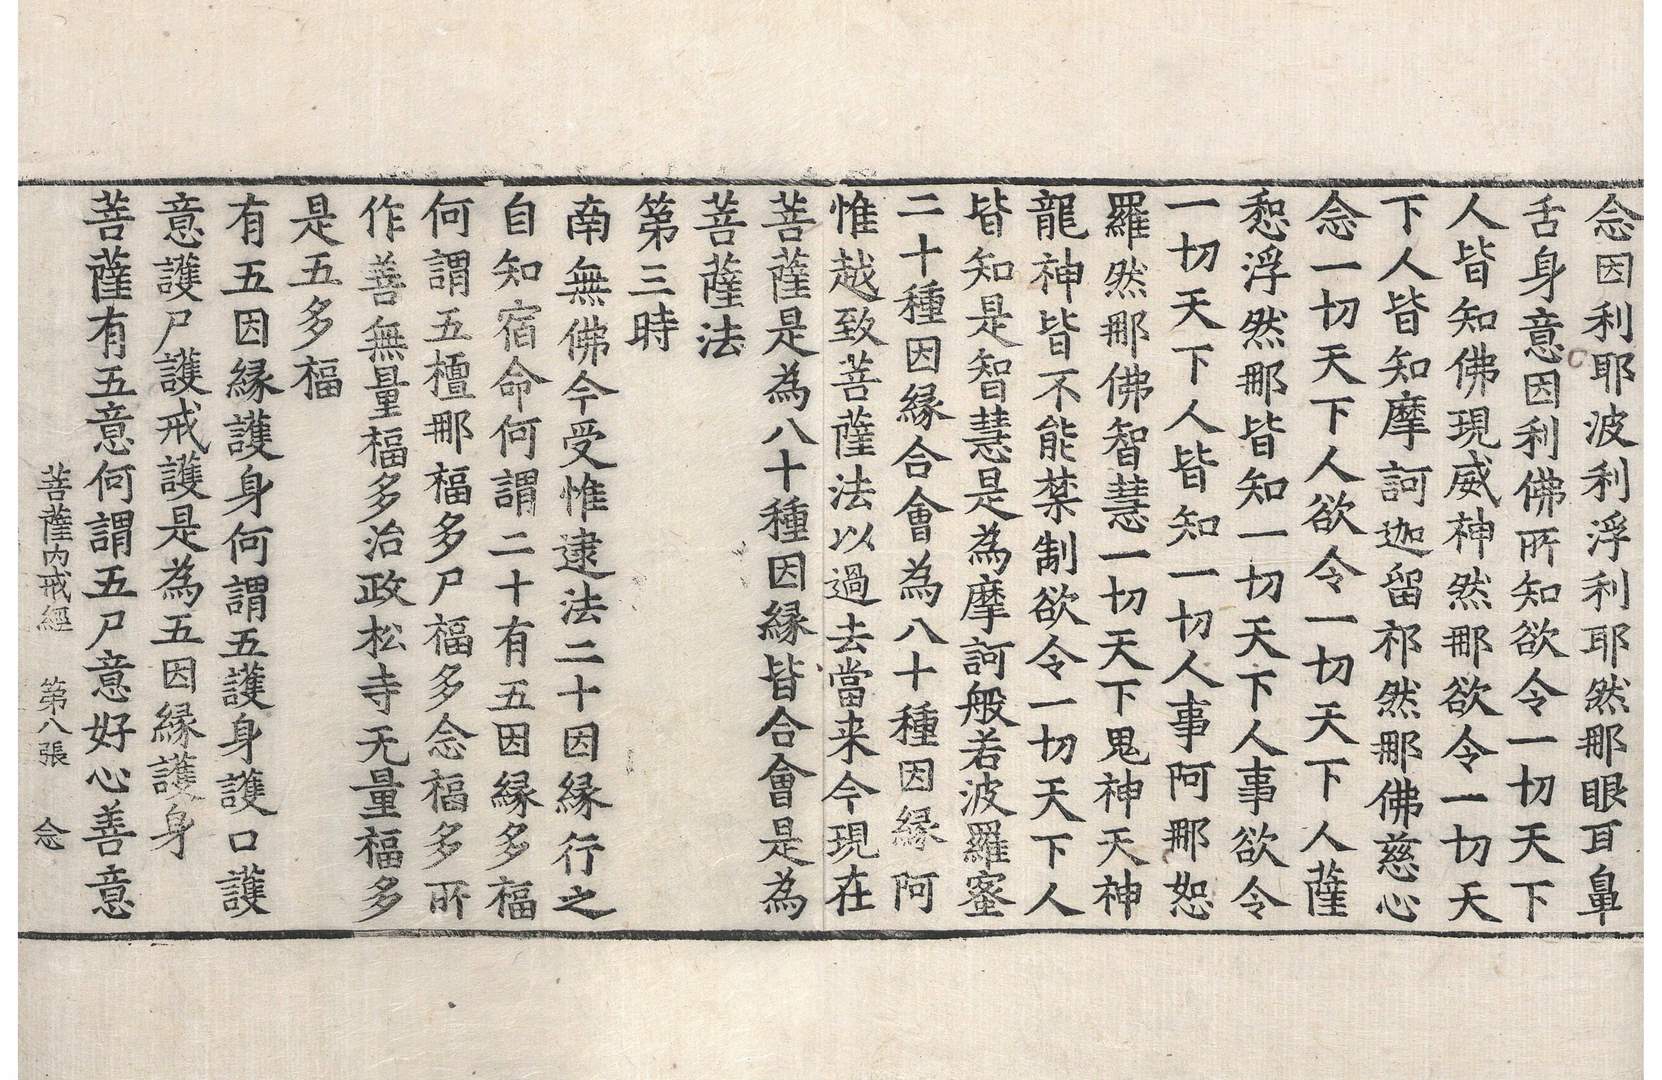 念因利耶波利浮利耶然那眼耳鼻
舌身意因利佛所知欲令一切天下
人皆知佛現威神然那欲令一切天
下人皆知摩訶迦留祁然那佛慈心
念一切天下人欲令一切天下人薩
惒浮然那皆知一切天下人事欲令
一切天下人皆知一切人事阿那恕
羅然那佛智慧一切天下鬼神天神
龍神皆不能禁制欲令一切天下人
皆知是智慧是為摩訶般若波羅蜜
二十種因緣合會為八十種因緣阿
惟越致菩薩法以過去當来今現在
菩薩是為八十種因緣皆合會是為
菩薩法
第三時
南無佛今受惟逮法二十因緣行之
自知宿命何謂二十有五因緣多福
何謂五檀那福多尸福多念福多所
作善無量福多治政松寺无量福多
是五多福
有五因緣護身何謂五護身護口護
意護尸護戒護是為五因緣護身
菩薩有五意何謂五尸意好心善意
菩薩内戒經 第八張 念